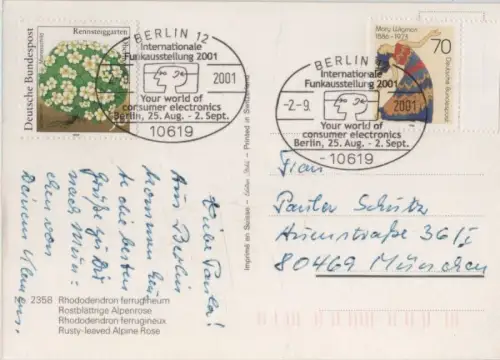 Deutsche Bundespost
Rennsteiggarten
BERLIN 12
Internationale
Funkausstellung 2001
2001
Your world of
consumer electronics
Berlin, 25. Aug. - 2. Sept.
10619
BERLIN
Internationale
Funkausstellung 2001
-2.-9.
2001
Your world of
consumer electronics
Berlin, 25. Aug. - 2. Sept.
10619
Mary Wigman
1886-1973
70
Deutsche Bundespost
Imprimé en Suisse - Printed in Switzerland
Liebe Paula!
Aus Berlin
kommen
te die besten
Grüße zu Dir
nach Mün-
chen von
Deinem
Frau
Paula Schütz
36/I
80469 München
2358 Rhododendron ferrugineum
Rostblättrige Alpenrose
Rhododendron ferrugineux
Rusty-leaved Alpine Rose